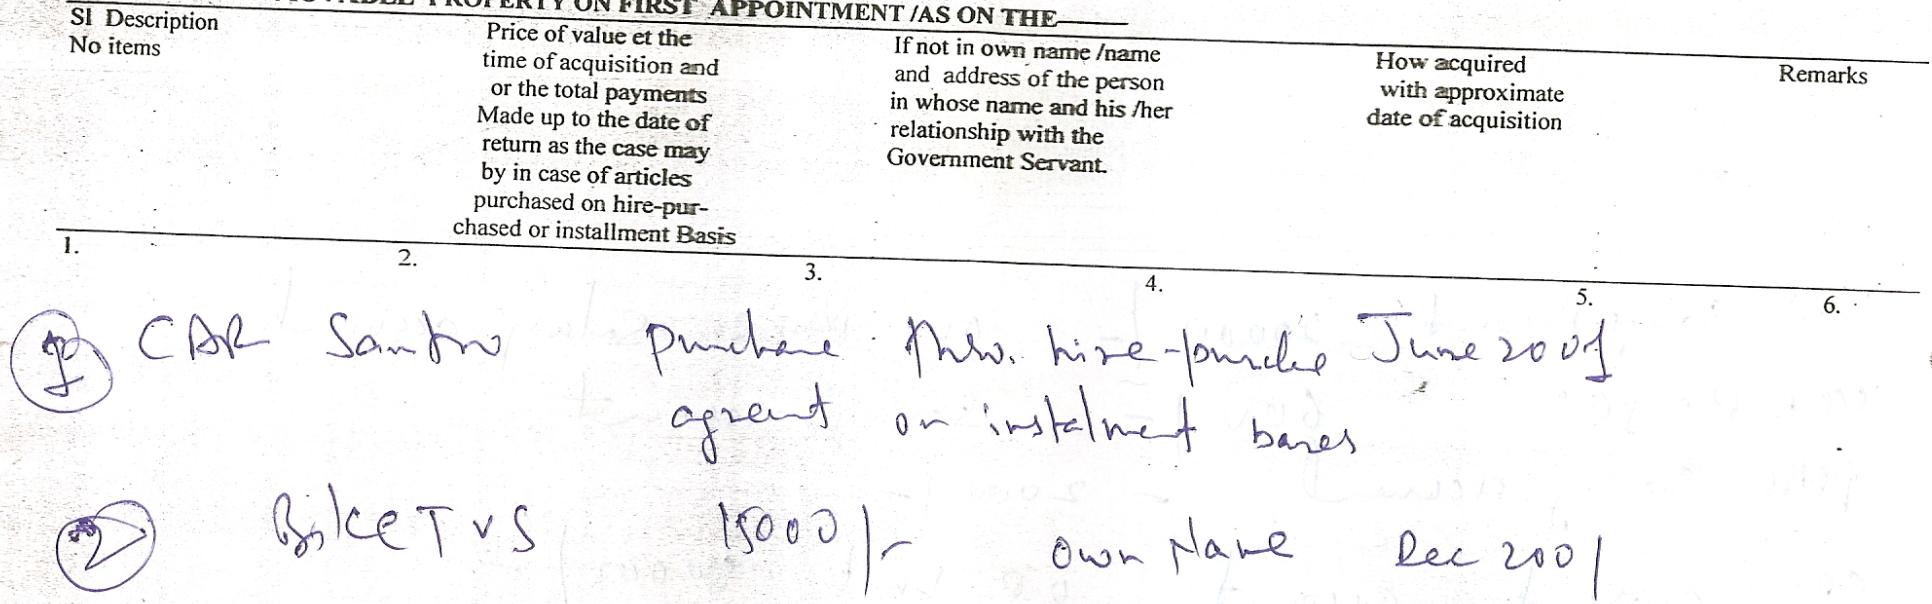 PROPERTY ON FIRST APPOINTMENT /AS ON THE
Sl Description
No items
Price of value et the
time of acquisition and
or the total payments
Made up to the date of
return as the case may
by in case of articles
purchased on hire-pur-
chased or installment Basis
If not in own name /name
and address of the person
in whose name and his /her
relationship with the
Government Servant.
How acquired
with approximate
date of acquisition
Remarks
1. 2. 3. 4. 5. 6.
1 CAR Santro purchase hire-purche June 2001
agreant on instalment bases
2 Bike TVS 15000/- own Name Dec 2001